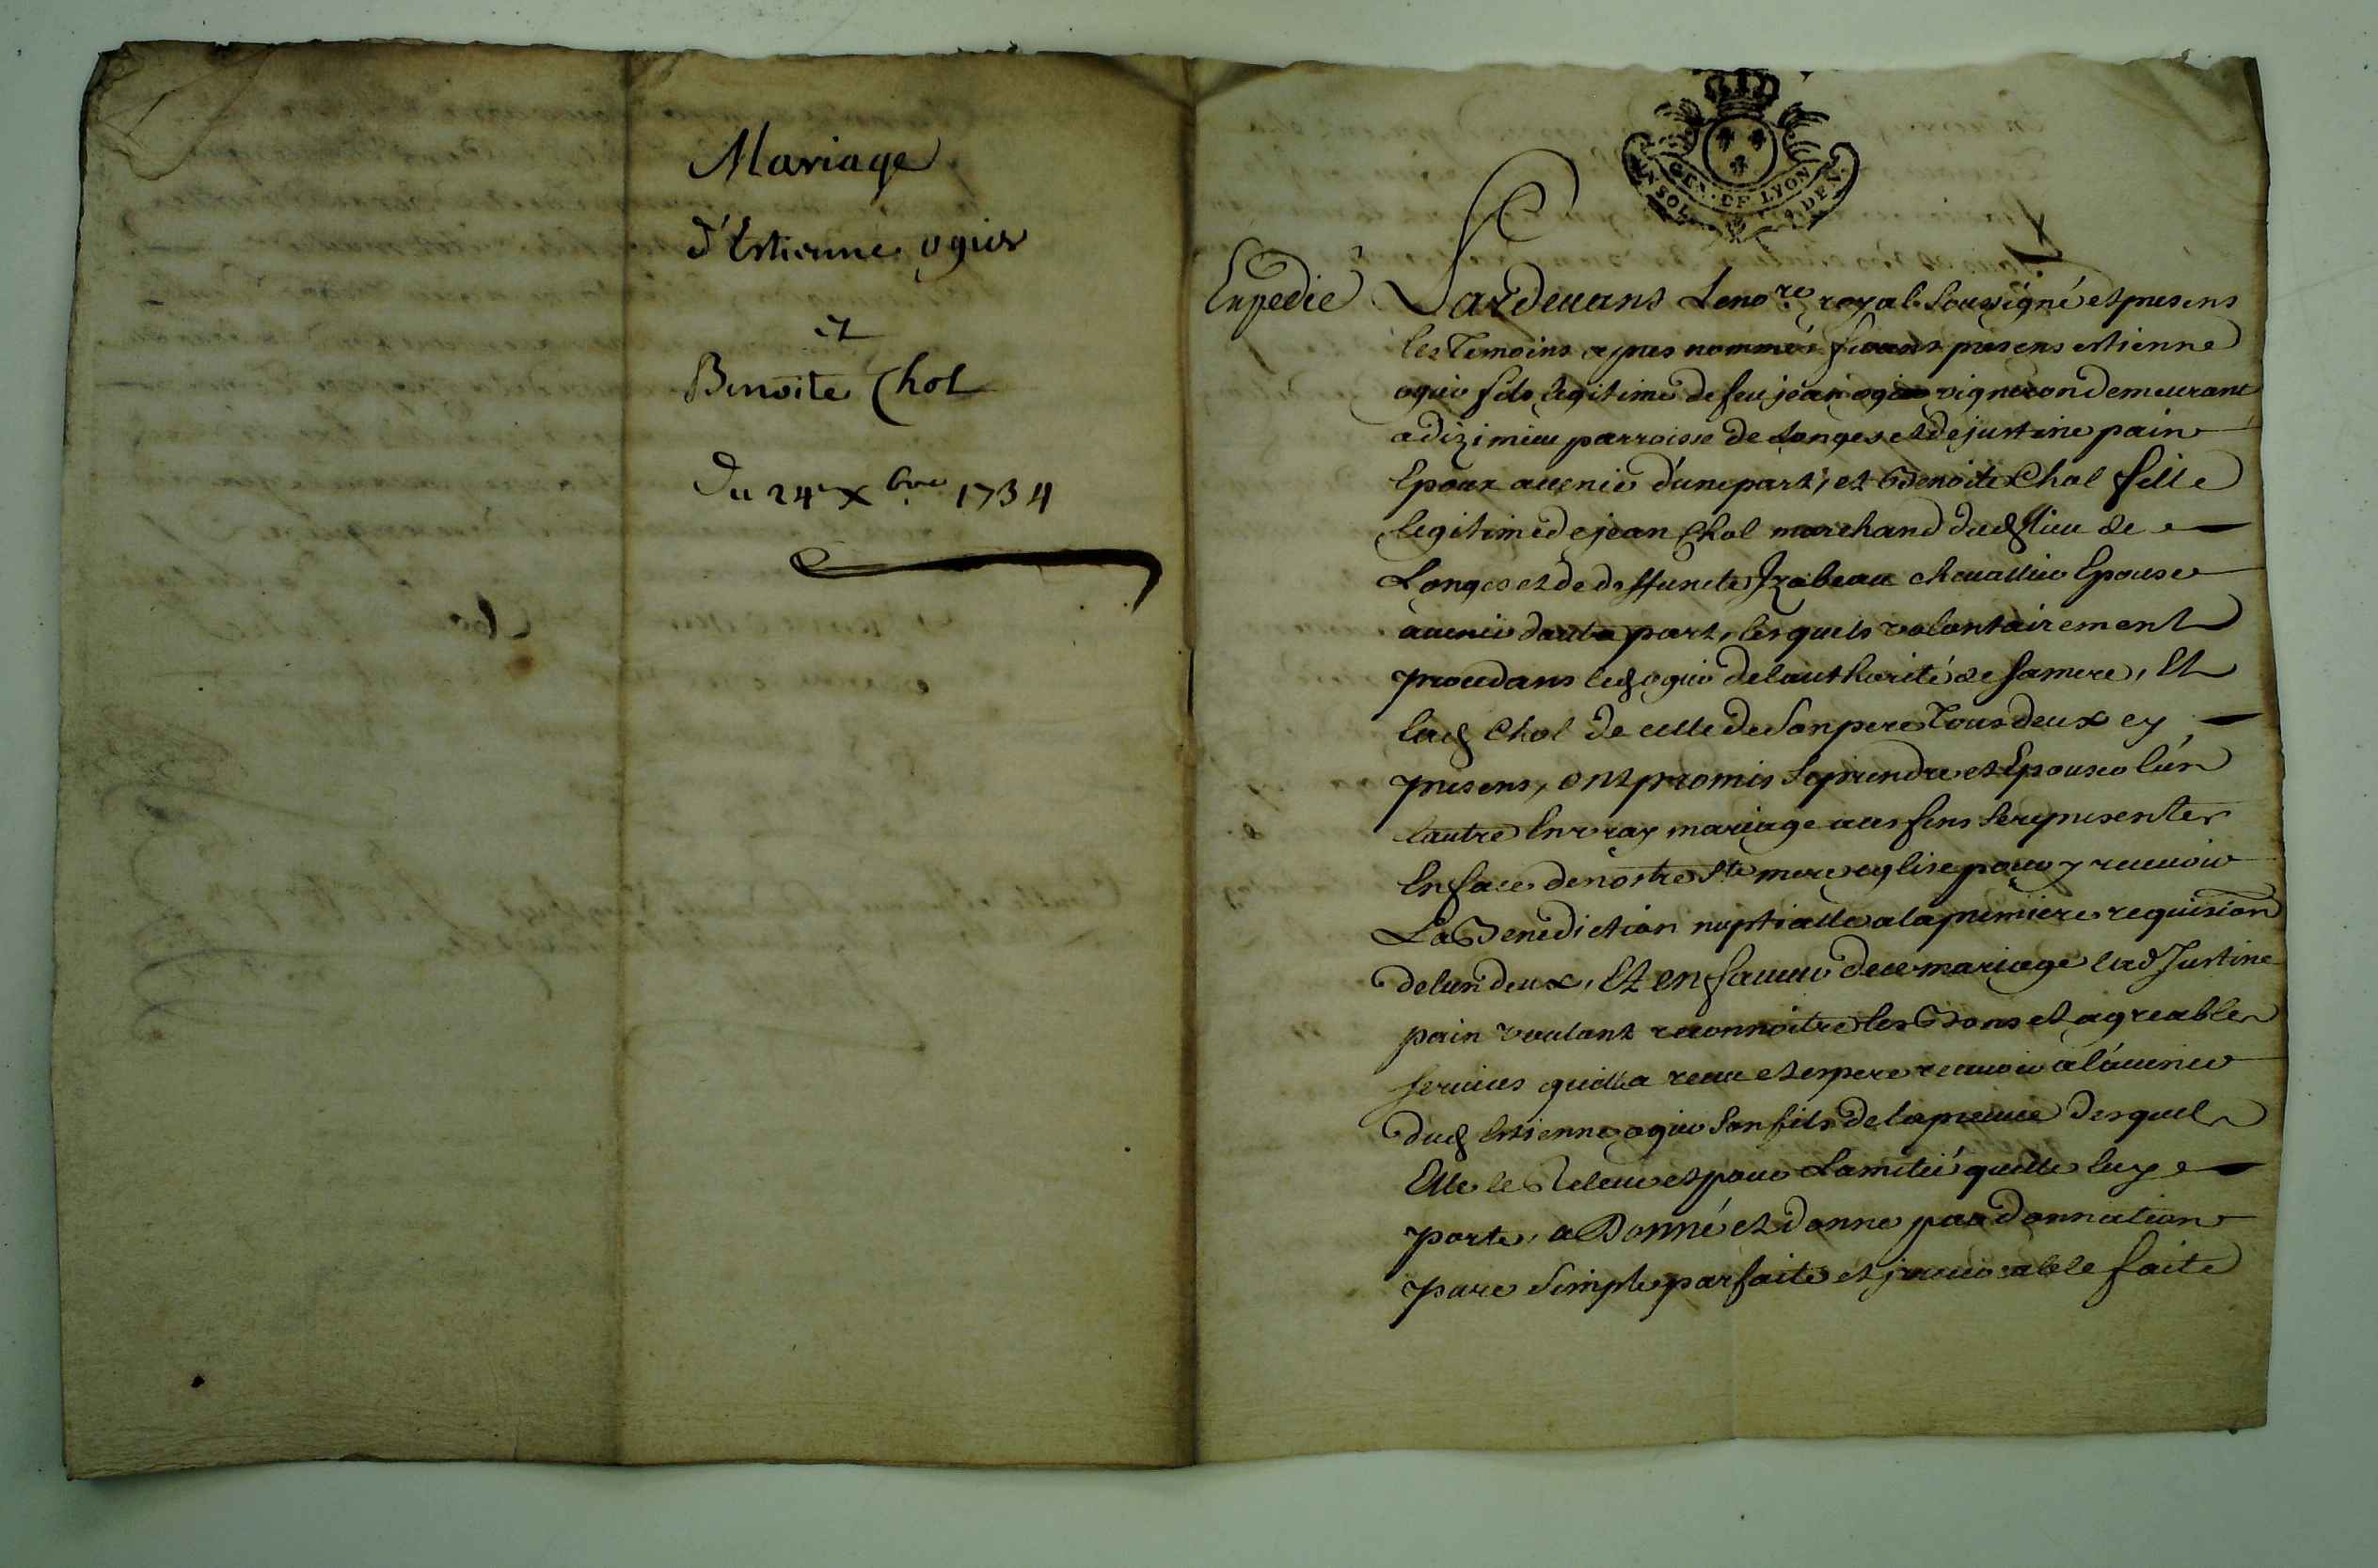 Mariage
d'Estienne ogier
et
Benoite Chol
Du 24e Xbre 1734
GEN. DE LYON
UN SOL 4 DEN.
Expedié
Pardevant Le nore royal Soussigné et presens
les Temoins apres nommés furent presens estienne
ogier fils legitime de feu jean ogier vigneron demeurant
a dizimieu parroisse de Longes et de justine pain
Epoux avenir d'une part, et Benoite Chol fille
legitime de jean Chol marchand dud lieu de
Longes et de deffuncte Izabeau chevallier Epouse
avenir dautre part, lesquels volontairement
procedans led ogier de lauthorité de sa mere, Et
lad Chol de celle de Son pere Tous deux cy
presens, ont promis Se prendre et Epouser lún
lautre En vray mariage aux fins Se representer
En face de nostre Ste mere eglise pour y recevoir
La Benediction nuptialle a la premiere requision
de lun deux, Et en faveur de ce mariage lad Justine
pain voulant reconnoitre les Bons et agreables
services quelle a receu et espere recevoir a l'avenir
dud Estienne ogier Son fils de la preuve desquels
Elle le Releve et pour Lamitié quelle luy
porte, a Donné et donne par donnation
pure Simple parfaite et jrrevocable faite